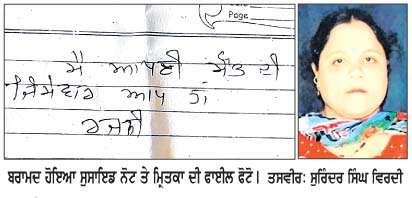 Page
ਮੈ ਆਪਣੀ ਮੌਤ ਦੀ
ਜਿੰਮੇਵਾਰ ਆਪ ਹਾਂ
ਰਜਨੀ
ਬਰਾਮਦ ਹੋਇਆ ਸੁਸਾਇਡ ਨੋਟ ਤੇ ਮ੍ਰਿਤਕਾ ਦੀ ਫਾਈਲ ਫੋਟੋ। ਤਸਵੀਰ: ਸੁਰਿੰਦਰ ਸਿੰਘ ਵਿਰਦੀ